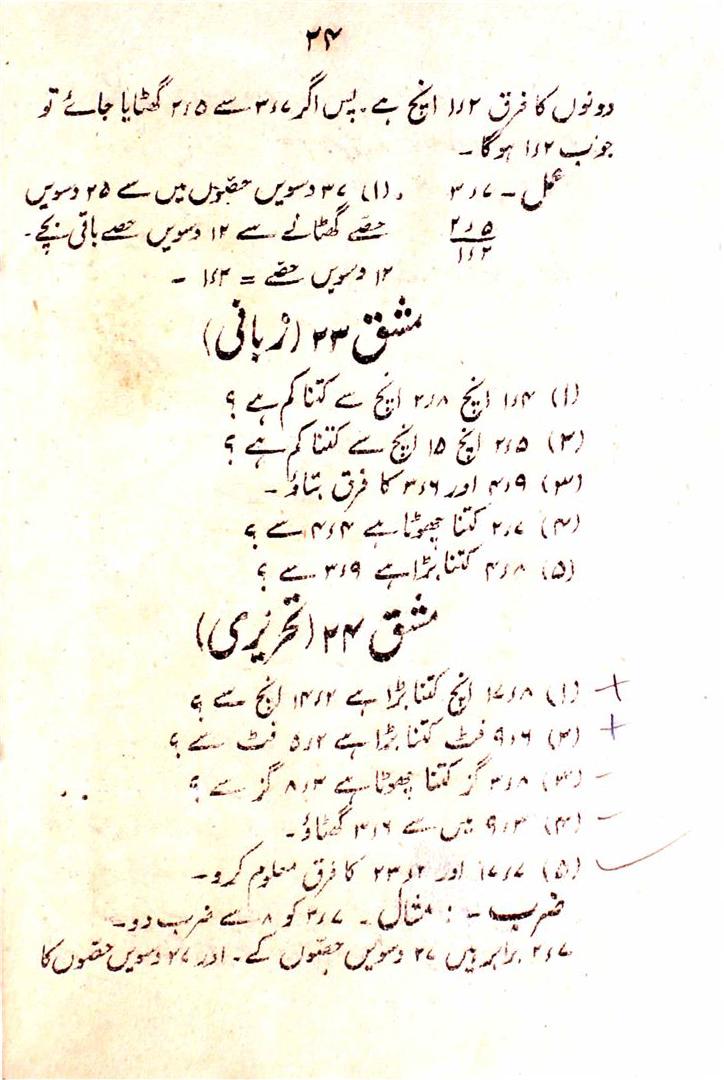 ۲۴
دونوں کا فرق ۱ء۲ اینچ ہے۔ پس اگر ۳ء۷ سے ۲ء۵ گھٹایا جائے تو
جوب ۱ء۲ ہوگا۔
عمل ۔ ۳ء۷ (۱) ۳۷ دسویں حصّوں میں سے ۲۵ دسویں
۲ء۵ حصّے گھٹانے سے ۱۲ دسویں حصے باقی بچے۔
۱ء۲
۱۲ دسویں حصّے = ۱ء۲ ۔
مشق ۲۳ (زبانی)
(۱) ۱ء۴ اینچ ۲ء۸ اینچ سے کتنا کم ہے ؟
(۲) ۲ء۵ اینچ ۱۵ اینچ سے کتنا کم ہے ؟
(۳) ۴ء۹ اور ۳ء۶ کا فرق بتاؤ۔
(۴) ۲ء۷ کتنا چھوٹا ہے ۴ء۴ سے ؟
(۵) ۴ء۸ کتنا بڑا ہے ۳ء۹ سے ؟
مشق ۲۴ (تحریری)
(۱) ۱۷ء۸ اینچ کتنا بڑا ہے ۱۴ء۲ اینچ سے ؟
(۲) ۹ء۶ فٹ کتنا بڑا ہے ۵ء۲ فٹ سے ؟
(۳) ۳ء۸ گز کتنا چھوٹا ہے ۸ء۳ گز سے ؟
(۴) ۹ء۳ میں سے ۳ء۶ گھٹاؤ۔
(۵) ۱۷ء۷ اور ۲۳ء۲ کا فرق معلوم کرو۔
ضرب ۔ : مثال ۔ ۳ء۷ کو ۸ سے ضرب دو۔
۲ء۷ برابر ہیں ۲۷ دسویں حصّوں کے۔ اور ۲۷ دسویں حصّوں کا